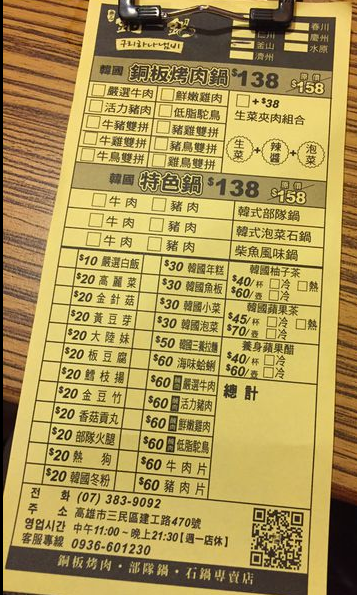 구리하나냄비
春川
仁川 慶州
釜山 水原
濟州
韓國 銅板烤肉鍋 $138 原價 $158
嚴選牛肉 鮮嫩雞肉 +$38
活力豬肉 低脂鴕鳥 生菜夾肉組合
牛豬雙拼 豬雞雙拼
牛雞雙拼 豬鳥雙拼 生菜+辣醬+泡菜
牛鳥雙拼 雞鳥雙拼
韓國 特色鍋 $138 原價 $158
牛肉 豬肉 韓式部隊鍋
牛肉 豬肉 韓式泡菜石鍋
牛肉 豬肉 柴魚風味鍋
$10 嚴選白飯 $30 韓國年糕 韓國柚子茶
$20 高麗菜 $30 韓國魚板 $40/杯 冷 熱
$60/壺 冷
$20 金針菇 $30 韓國小菜 韓國蘋果茶
$20 黃豆芽 $30 韓國泡菜 $45/杯 冷 熱
$70/壺 冷
$20 大陸妹 $50 韓國三養拉麵 養身蘋果醋
$20 板豆腐 $60 海味蛤蜊 $40/杯 冷
$60/壺 冷
$20 鱈枝揚 $60 嚴選牛肉 總計
$20 金豆竹 $60 活力豬肉
$20 香菇貢丸 $60 鮮嫩雞肉
$20 部隊火腿 $60 低脂鴕鳥
$20 熱狗 $60 牛肉片
$20 韓國冬粉 $60 豬肉片
電話 (07) 383-9092
地址 高雄市三民區建工路470號
營業時間 中午11:00~晚上21:30【週一店休】
客服專線 0936-601230
銅板烤肉・部隊鍋・石鍋專賣店